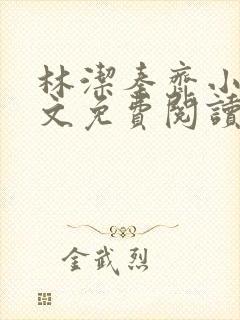 林潔秦齊小
文免費閱讀
金武烈